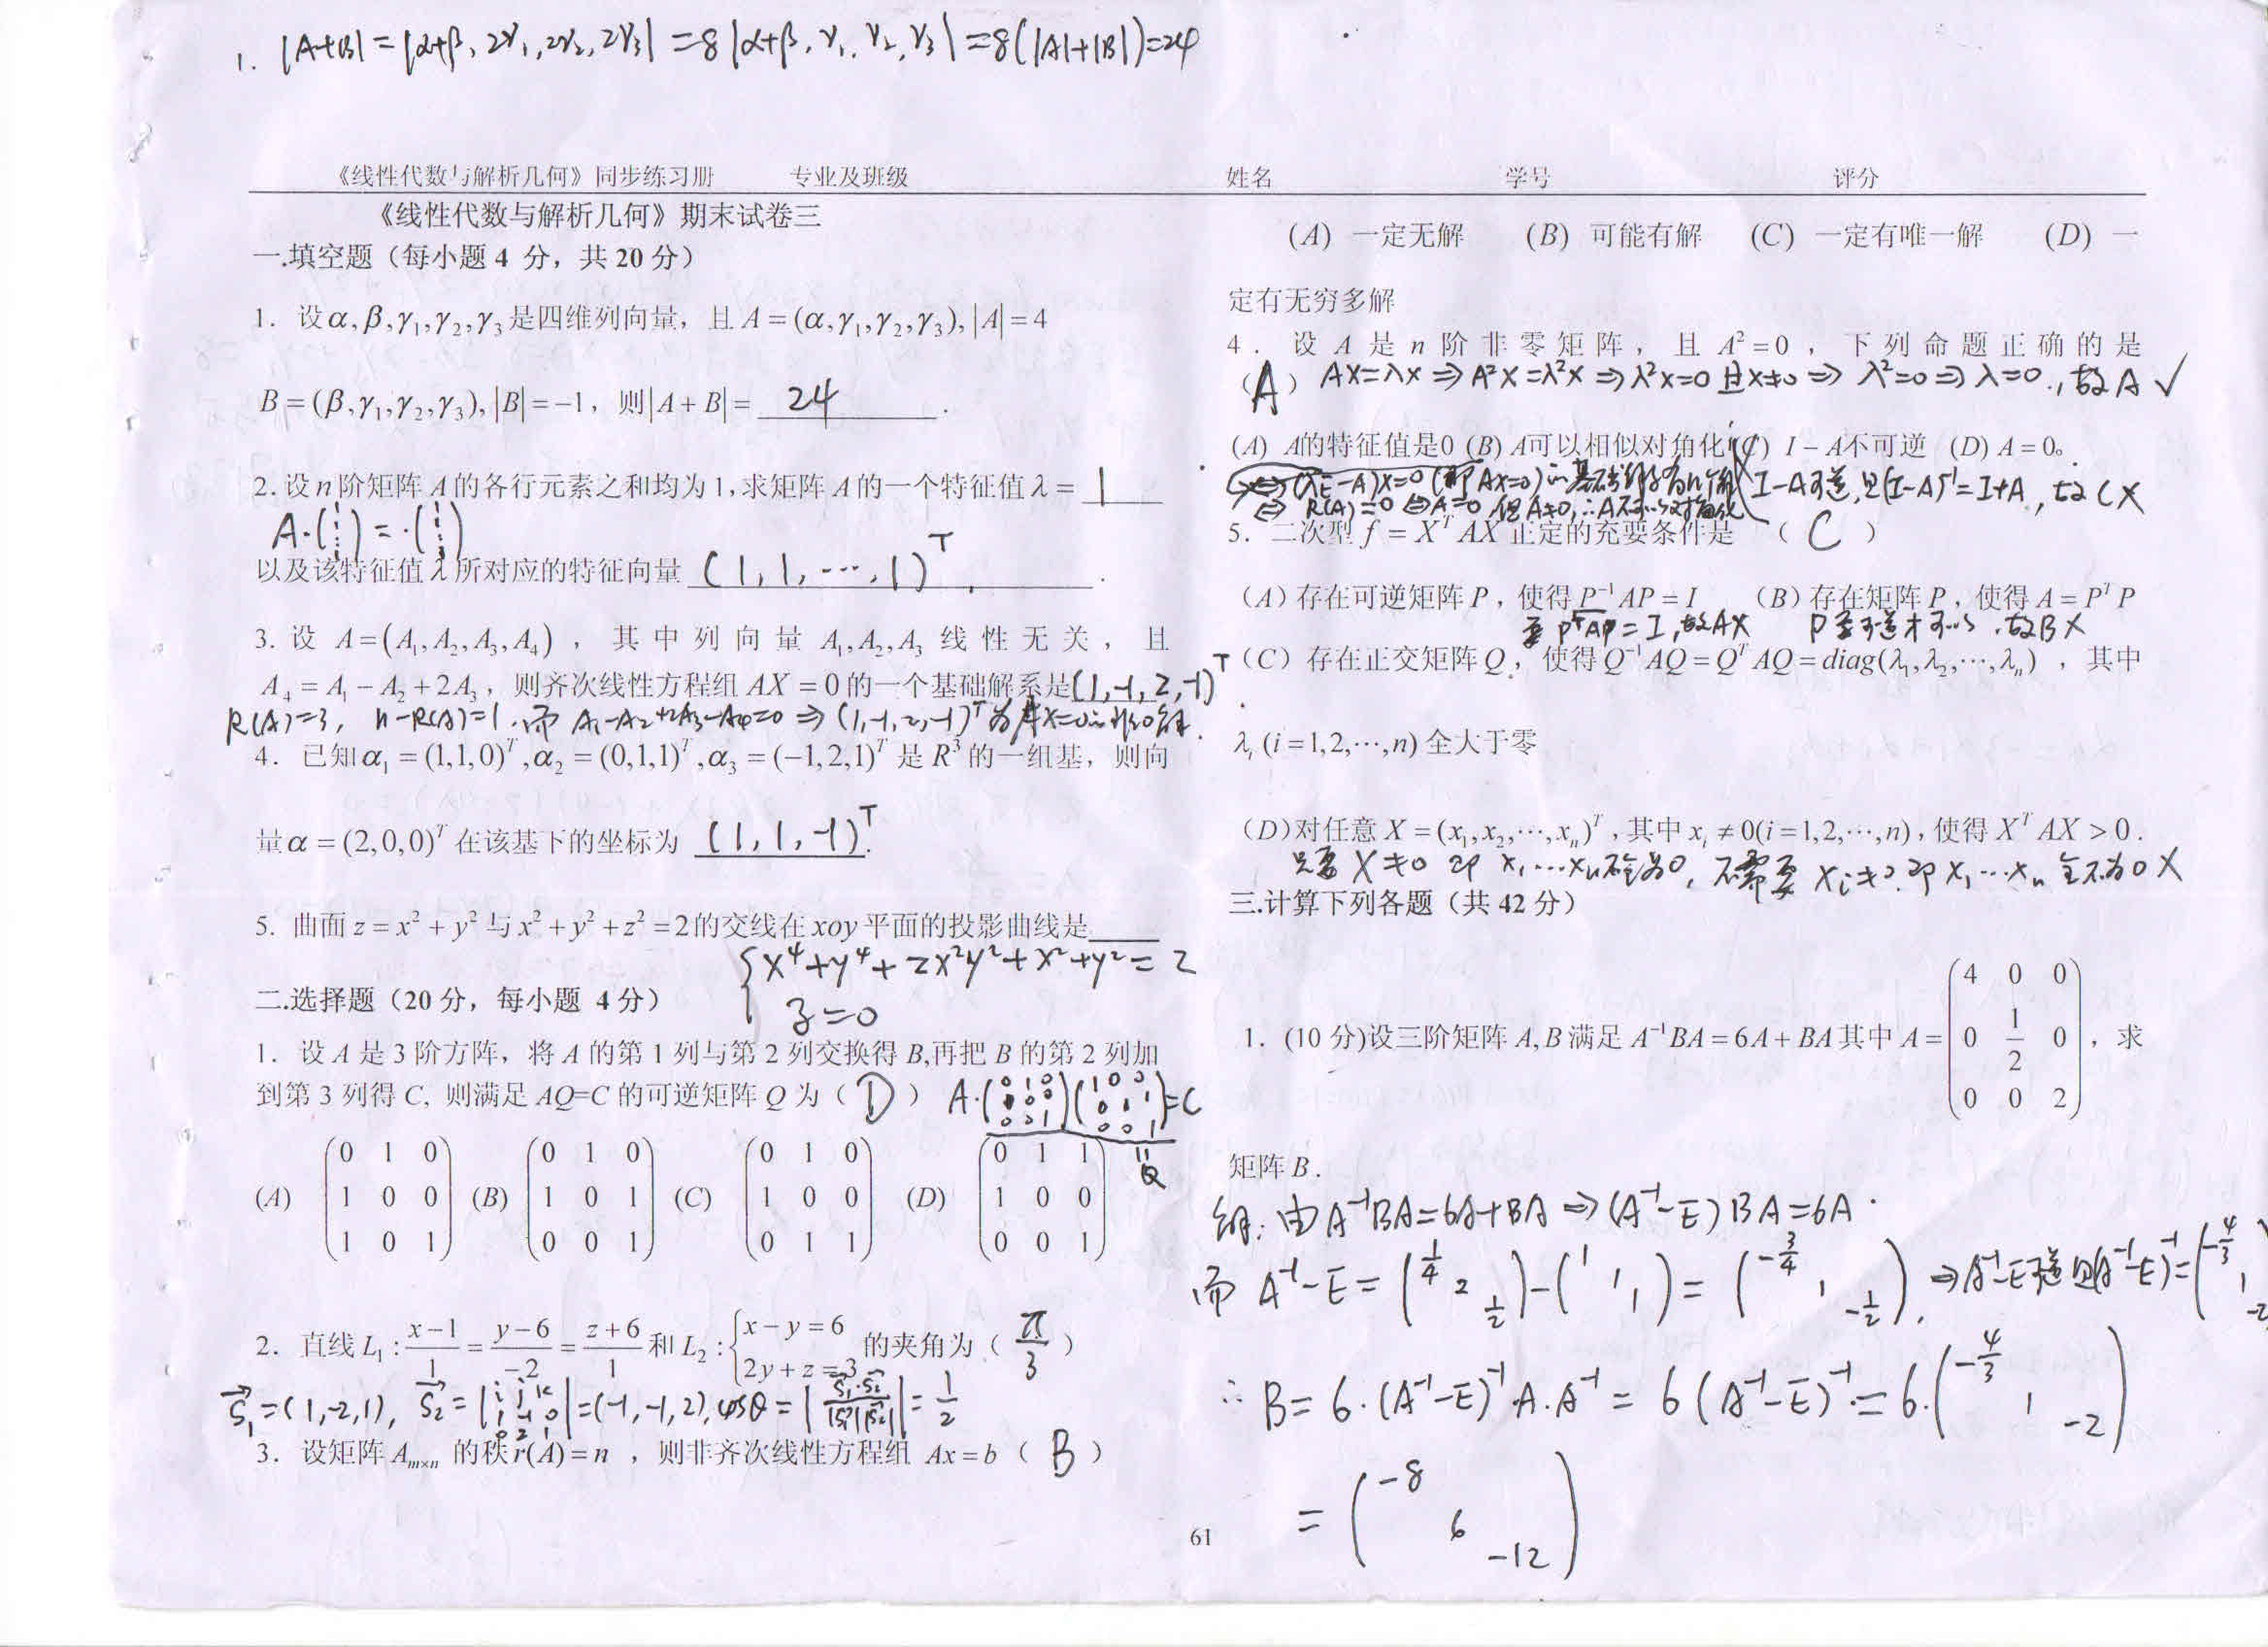 1. |A+B| = |α+β, 2γ₁, 2γ₂, 2γ₃| = 8|α+β, γ₁, γ₂, γ₃| = 8(|A|+|B|) = 24
《线性代数与解析几何》同步练习册 专业及班级 姓名 学号 评分
《线性代数与解析几何》期末试卷三
一.填空题（每小题 4 分，共 20 分）
1. 设α,β,γ₁,γ₂,γ₃是四维列向量，且 A=(α,γ₁,γ₂,γ₃),|A|=4
B=(β,γ₁,γ₂,γ₃),|B|=-1，则|A+B|= 24 .
2.设n阶矩阵A的各行元素之和均为1,求矩阵A的一个特征值λ= 1
A·(1 ⋮ 1) = ·(1 ⋮ 1)
以及该特征值λ所对应的特征向量 (1,1,⋯,1)ᵀ .
3. 设 A=(A₁,A₂,A₃,A₄)，其中列向量 A₁,A₂,A₃ 线性无关，且
A₄=A₁-A₂+2A₃，则齐次线性方程组 AX=0的一个基础解系是 (1,-1,2,-1)ᵀ
R(A)=3, n-R(A)=1. 而 A₁-A₂+2A₃-A₄=0 ⇒ (1,-1,2,-1)ᵀ 为AX=0的非0解.
4. 已知α₁=(1,1,0)ᵀ,α₂=(0,1,1)ᵀ,α₃=(-1,2,1)ᵀ是R³的一组基，则向
量α=(2,0,0)ᵀ在该基下的坐标为 (1,1,-1)ᵀ.
5. 曲面z=x²+y²与x²+y²+z²=2的交线在xoy平面的投影曲线是
{x⁴+y⁴+2x²y²+x²+y²=2
z=0
二.选择题（20 分，每小题 4 分）
1. 设A是3阶方阵，将A的第1列与第2列交换得B,再把B的第2列加
到第3列得C, 则满足AQ=C的可逆矩阵Q为（ D ） A·(0 1 0; 1 0 0; 0 0 1)(1 0 0; 0 1 1; 0 0 1)=C
0 1 0 0 1 0 0 1 0 0 1 1 = Q
(A) 1 0 0 (B) 1 0 1 (C) 1 0 0 (D) 1 0 0
1 0 1 0 0 1 0 1 1 0 0 1
2. 直线L₁: (x-1)/1=(y-6)/-2=(z+6)/1和L₂:{x-y=6 2y+z=3 的夹角为（ π/3 ）
S₁=(1,-2,1), S₂=|i j k; 1 -1 0; 0 2 1|=(-1,-1,2), cosθ=|S₁·S₂/|S₁||S₂||=1/2
3. 设矩阵Aₘₓₙ的秩r(A)=n，则非齐次线性方程组 Ax=b（ B ）
(A) 一定无解 (B) 可能有解 (C) 一定有唯一解 (D) 一
定有无穷多解
4. 设A是n阶非零矩阵，且A²=0，下列命题正确的是
（ A ） AX=λX ⇒ A²X=λ²X ⇒ λ²X=0 且X≠0 ⇒ λ²=0 ⇒ λ=0., 故A✓
(A) A的特征值是0 (B) A可以相似对角化 (C) I-A不可逆 (D) A=0。
(λE-A)X=0 (即AX=0)的基础解系为n个 I-A可逆, 且(I-A)⁻¹=I+A, 故C×
⇔ R(A)=0 ⇔ A=0, 但A≠0, ∴A不可以对角化
5. 二次型 f=XᵀAX 正定的充要条件是 （ C ）
(A)存在可逆矩阵P，使得P⁻¹AP=I (B)存在矩阵P，使得A=PᵀP
要PᵀAP=I, 故A× P要可逆才可以. 故B×
(C)存在正交矩阵Q，使得Q⁻¹AQ=QᵀAQ=diag(λ₁,λ₂,⋯,λₙ)，其中
λᵢ(i=1,2,⋯,n)全大于零
(D)对任意X=(x₁,x₂,⋯,xₙ)ᵀ,其中xᵢ≠0(i=1,2,⋯,n),使得XᵀAX>0.
只要X≠0 即 x₁⋯xₙ不全为0, 不需要 xᵢ≠0 即 x₁⋯xₙ 全不为0 ×
三.计算下列各题（共 42 分）
1. (10 分)设三阶矩阵A,B满足A⁻¹BA=6A+BA其中A=(4 0 0; 0 1/2 0; 0 0 2)，求
矩阵B.
解: 由A⁻¹BA=6A+BA ⇒ (A⁻¹-E)BA=6A.
而 A⁻¹-E = (1/4 2 1/2)-(1 1 1) = (-3/4 1 -1/2), ⇒ A⁻¹-E可逆且(A⁻¹-E)⁻¹=(-4/3 1 -2
∴ B=6·(A⁻¹-E)⁻¹A·A⁻¹ = 6(A⁻¹-E)⁻¹ = 6·(-4/3 1 -2)
= (-8 6 -12)
61